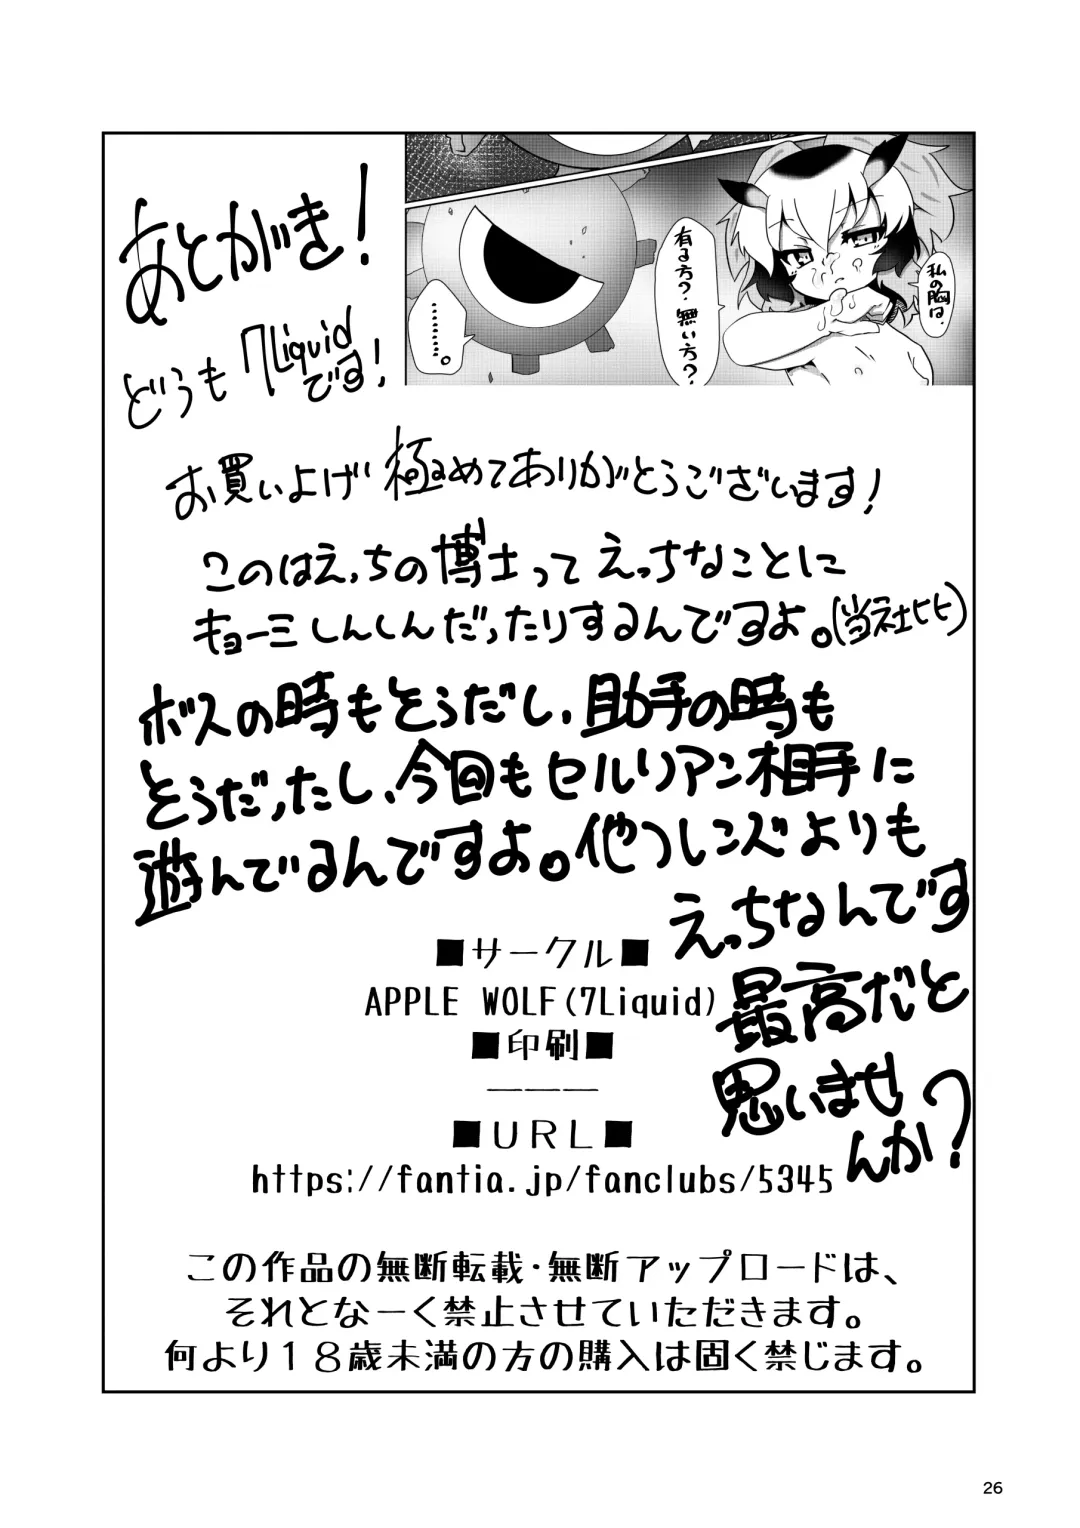 私の胸は、
有る方？無い方？
………。
あとがき！
どうも 7Liquid
です！
お買いよげ 極めてありがとうございます！
このはえっちの博士って えっちなことに
キョーミしんしんだったりするんですよ。(当社比)
ボスの時もとうだし、助手の時も
とうだったし、今回もセルリアン相手に
遊んでるんですよ。他フレンズよりも
えっちなんです
最高だと
思いませ
んか？
■サークル■
APPLE WOLF(7Liquid)
■印刷■
———
■URL■
https://fantia.jp/fanclubs/5345
この作品の無断転載・無断アップロードは、
それとなーく禁止させていただきます。
何より18歳未満の方の購入は固く禁じます。
26